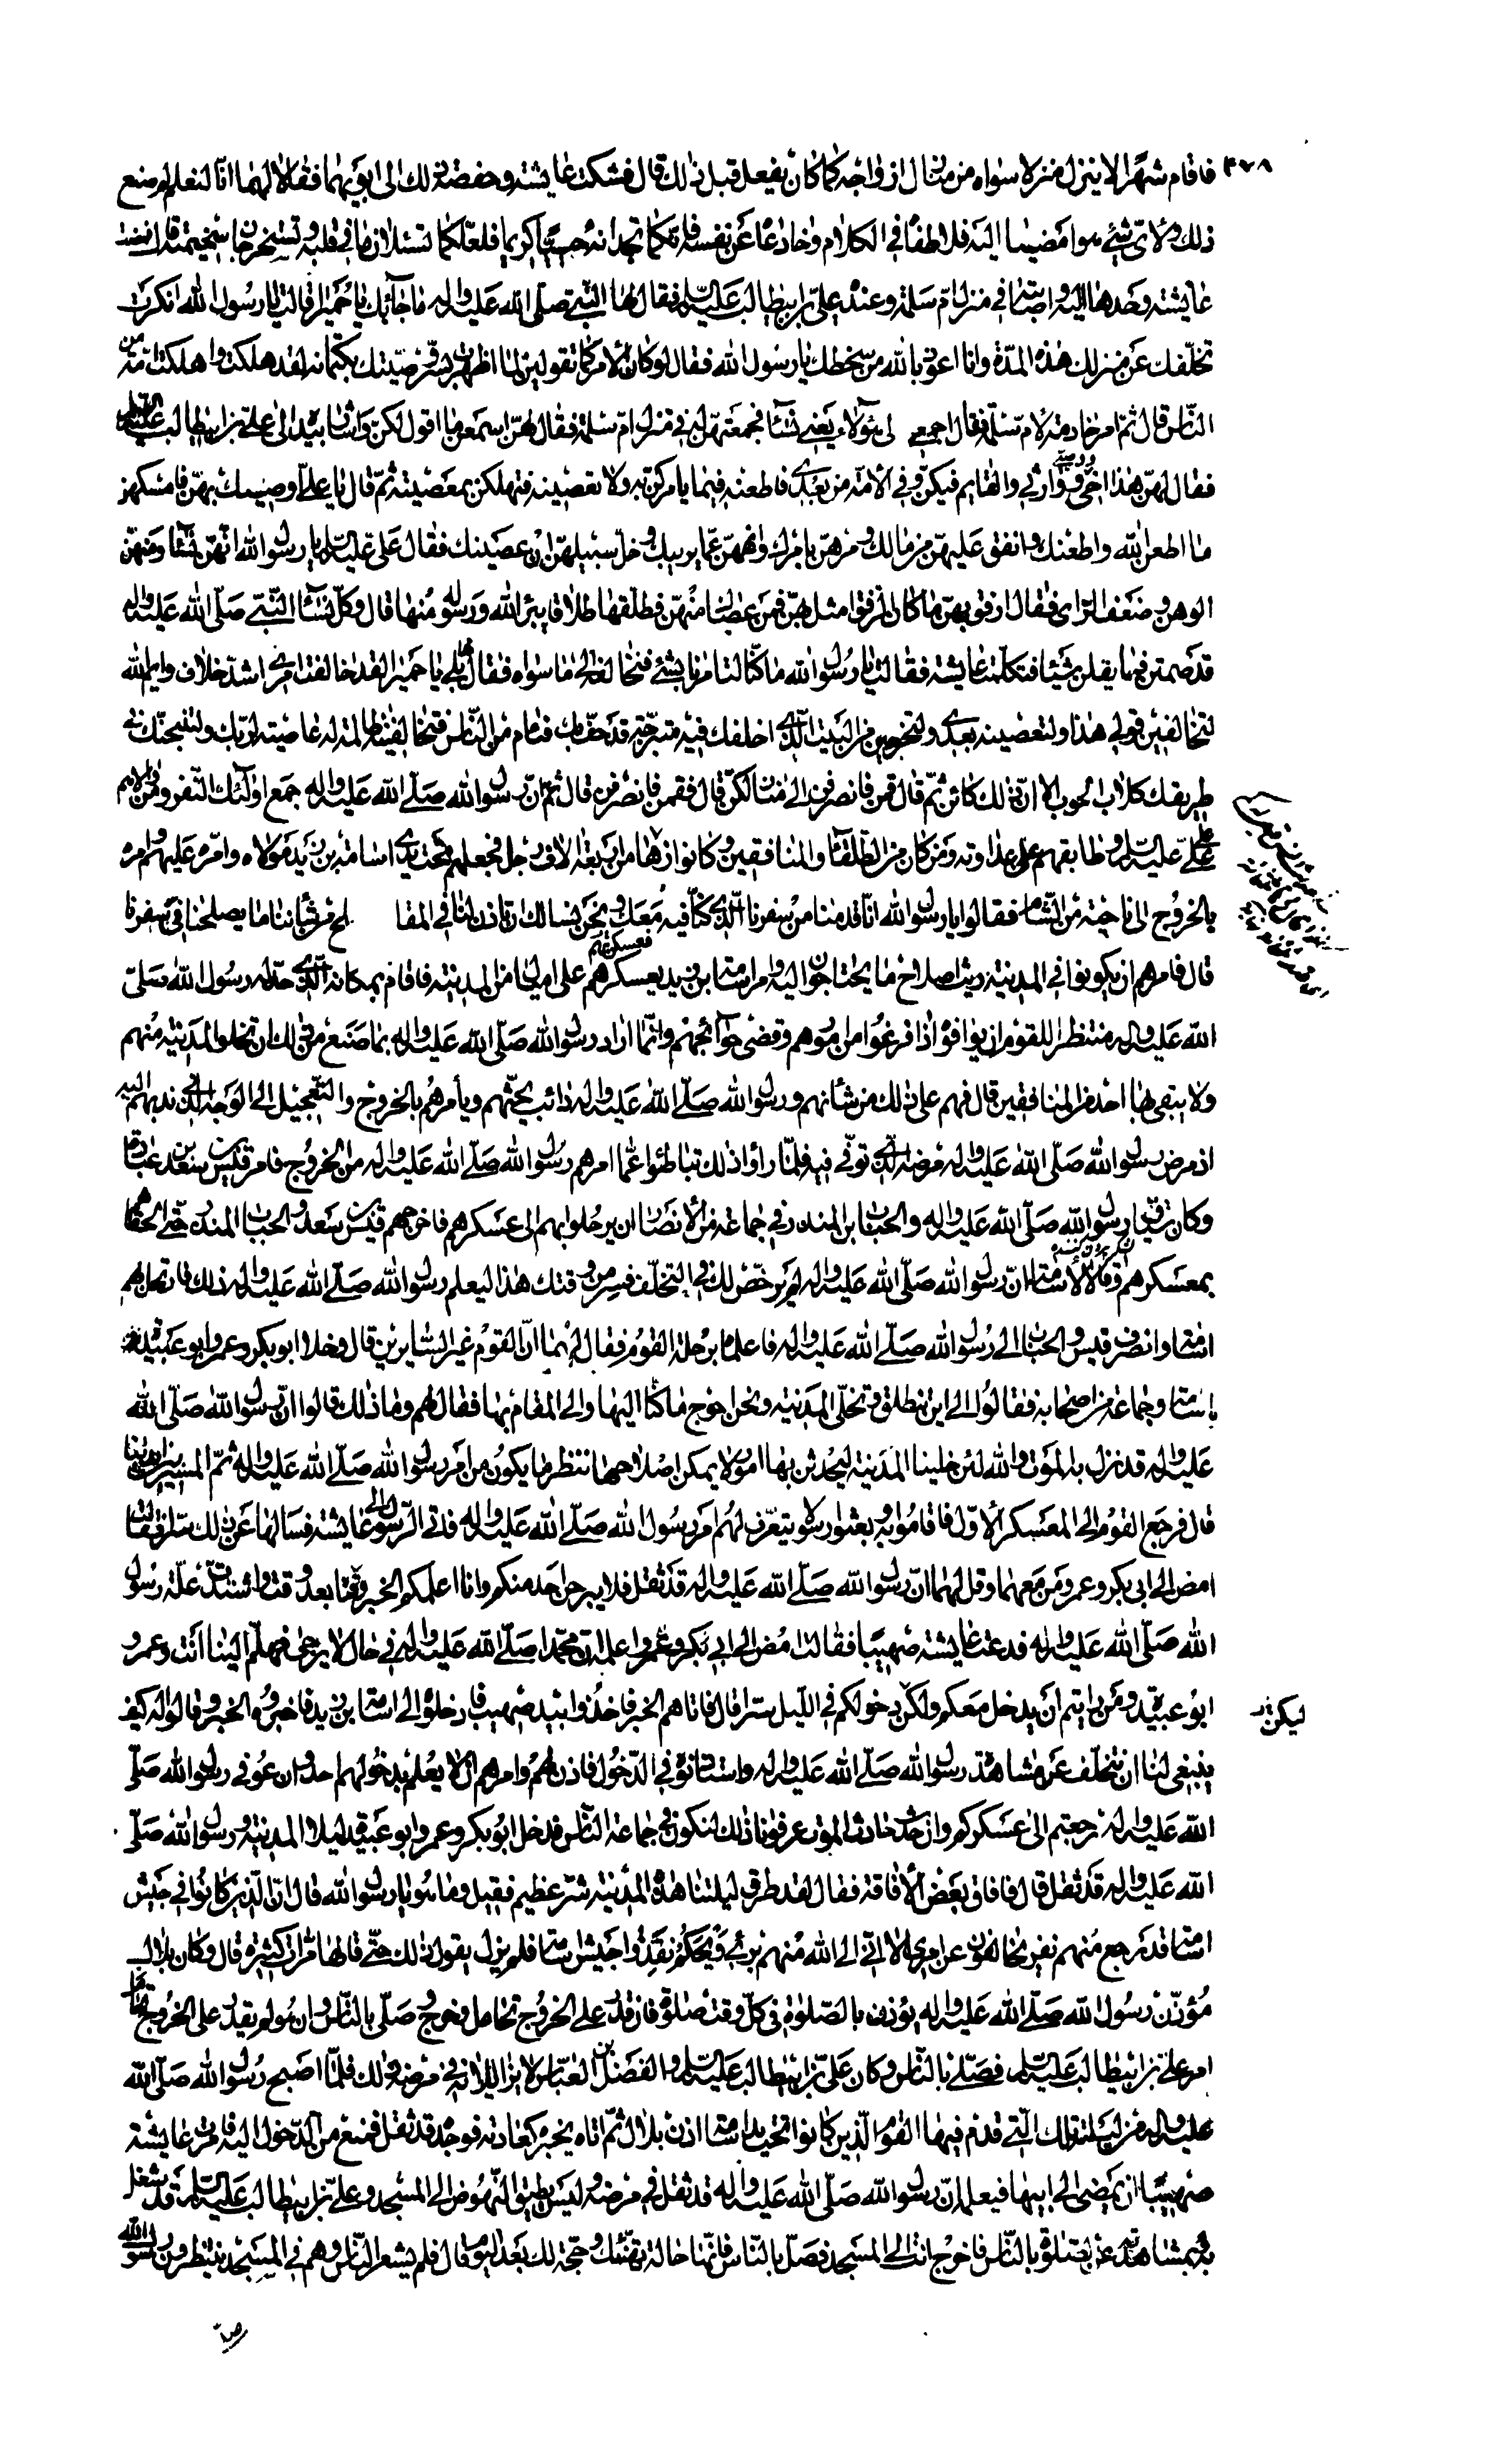 ٣٧٨
فاقام شهرا لا ينزل منزلا سواه من منازل ازواجه كما كان يفعل قبل ذلك قال فشكت عايشة وحفصة ذلك الى ابويهما فقالا لهما انا لنعلم لم صنع
ذلك ولاى شئ هو امضيا اليه فلاطفاه في الكلام وخادعاه عن نفسه فانكما تجدانه حييا كريما فلعلكما تسلان ما في قلبه وتستخرجان سخيمته قال فمضت
عايشة وحدها اليه واصابته في منزل ام سلمة وعنده علي بن ابيطالب عليه السلم فقال لها النبي صلى الله عليه واله ما جاء بك يا حميراء قالت يا رسول الله انكرت
تخلفك عن منزلك هذه المدة وانا اعوذ بالله من سخطك يا رسول الله فقال لو كان الامر كما تقولين لما اظهرت سرا وصيتك بكتمانه لقد هلكت واهلكت امة من
الناس قال ثم امر خادمة لام سلمة فقال اجمعي لي هؤلاء يعني نسائه فجمعتهن له في منزل ام سلمة فقال لهن اسمعن ما اقول لكن واشار بيده الى علي بن ابيطالب عليه السلم
فقال لهن هذا اخي ووصيي ووارثي والقائم فيكن وفي الامة من بعدي فاطعنه فيما يامركن به ولا تعصينه فتهلكن بمعصيته ثم قال يا علي اوصيك بهن فامسكهن
ما اطعن الله واطعنك وانفق عليهن من مالك ومرهن بامرك وانههن عما يريبك وخل سبيلهن ان عصينك فقال علي عليه السلم يا رسول الله انهن نساء وفيهن
الوهن وضعف الراى فقال ارفق بهن ما كان الرفق امثل بهن فمن عصاك منهن فطلقها طلاقا يبرئ الله ورسوله منها قال وكل نساء النبي صلى الله عليه واله
قد صمتن فما يقلن شيئا فتكلمت عايشة فقالت يا رسول الله ما كنا لتامرنا بشئ فنخالفه الى ما سواه فقال لها بلى يا حميراء لقد خالفت امري اشد خلاف وايم الله
لتخالفين قولي هذا ولتعصينه بعدي ولتخرجين من البيت الذي اخلفك فيه متبرجة قد حف بك فئام من الناس فتخالفينه ظالمة له عاصية لربك ولتنبحنك في
طريقك كلاب الحوئب الا ان ذلك كائن ثم قال قمن فانصرفن الى منازلكن قال فقمن فانصرفن قال ثم ان رسول الله صلى الله عليه واله جمع اولئك النفر ومن والاهم
على علي عليه السلم وطابقهم على عداوته ومن كان من الطلقاء والمنافقين وكانوا زهاء اربعة الاف رجل فجعلهم تحت يدي اسامة بن زيد مولاه وامره عليهم وامره
بالخروج الى ناحية من الشام فقالوا يا رسول الله انا قدمنا من سفرنا الذي كنا فيه معك ونحن نسالك ان تاذن لنا في المقام لنصلح من شاننا ما يصلحنا في سفرنا
قال فامرهم ان يكونوا في المدينة ريث اصلاح ما يحتاجون اليه وامر اسامة بن زيد يعسكرهم على اميال من المدينة فاقام بمكانه الذي حد له رسول الله صلى
الله عليه واله منتظرا للقوم ان يوافوه اذا فرغوا من امورهم وقضى حوائجهم وانما اراد رسول الله صلى الله عليه واله بما صنع من ذلك ان تخلو المدينة منهم
ولا يبقى بها احد من المنافقين قال فهم على ذلك من شانهم ورسول الله صلى الله عليه واله دائب يحثهم ويامرهم بالخروج والتعجيل الى الوجه الذي ندبهم اليه
اذ مرض رسول الله صلى الله عليه واله مرضه الذي توفي فيه فلما راوا ذلك تباطئوا عما امرهم رسول الله صلى الله عليه واله من الخروج فامر قيس بن سعد بن عبادة
وكان رسول الله صلى الله عليه واله والحباب بن المنذر في جماعة من الانصار ان يرحلوا بهم الى عسكرهم فاخرجهم قيس بن سعد والحباب بن المنذر حتى الحقاهم
بمعسكرهم وقالا لاسامة ان رسول الله صلى الله عليه واله لم يرخص لك في التخلف فسر من وقتك هذا ليعلم رسول الله صلى الله عليه واله ذلك فارتحل بهم
اسامة وانصرف قيس والحباب الى رسول الله صلى الله عليه واله فاعلماه برحلة القوم فقال لهما ان القوم غير سايرين قال وخلا ابو بكر وعمر وابو عبيدة
باسامة وجماعة من اصحابه فقالوا الى اين ننطلق ونخلي المدينة ونحن احوج ما كنا اليها والى المقام بها فقال لهم وما ذلك قالوا ان رسول الله صلى الله
عليه واله قد نزل به الموت والله لئن خلينا المدينة ليحدثن بها امور لا يمكن اصلاحها ننتظر ما يكون من امر رسول الله صلى الله عليه واله ثم المسير بين ايدينا
قال فرجع القوم الى المعسكر الاول فاقاموا به وبعثوا رسولا يتعرف لهم امر رسول الله صلى الله عليه واله فاتى الرسول الى عايشة فسالها عن ذلك سرا فقالت
امض الى ابي بكر وعمر ومن معهما وقل لهما ان رسول الله صلى الله عليه واله قد ثقل فلا يبرحن احد منكم وانا اعلمكم الخبر وقتا بعد وقت واشتدت علة رسول
الله صلى الله عليه واله فدعت عايشة صهيبا فقالت امض الى ابي بكر واعلمه ان محمدا صلى الله عليه واله في حال لا يرجى فهلم الينا انت وعمر و
ابو عبيدة ومن رايتم ان يدخل معكم وليكن دخولكم في الليل سرا قال فاتاهم الخبر فاخذوا بيد صهيب فادخلوه الى اسامة بن زيد فاخبروه الخبر وقالوا له كيف
ليكن
ينبغي لنا ان نتخلف عن مشاهدة رسول الله صلى الله عليه واله واستاذنوه في الدخول فاذن لهم وامرهم ان لا يعلم بدخولهم احد وان عوفي رسول الله صلى
الله عليه واله رجعتم الى عسكركم وان حدث حادث الموت عرفونا ذلك لنكون في جماعة الناس فدخل ابو بكر وعمر وابو عبيدة ليلا المدينة ورسول الله صلى
الله عليه واله قد ثقل قال فافاق بعض الافاقة فقال لقد طرق ليلتنا هذه المدينة شر عظيم فقيل وما هو يا رسول الله قال ان الذين كانوا في جيش
اسامة قد رجع منهم نفر يخالفون عن امري الا اني الى الله منهم برئ ويحكم نفذوا جيش اسامة فلم يزل يقول ذلك حتى قالها مرات كثيرة قال وكان بلال
مؤذن رسول الله صلى الله عليه واله يؤذن بالصلوة في كل وقت صلوة فان قدر على الخروج تحامل وخرج وصلى بالناس وان هو لم يقدر على الخروج
امر علي بن ابيطالب عليه السلم فصلى بالناس وكان علي بن ابيطالب عليه السلم والفضل بن العباس لا يزايلانه في مرضه ذلك فلما اصبح رسول الله صلى الله
عليه واله من ليلته تلك التي قدم فيها القوم الذين كانوا تحت يدي اسامة اذن بلال ثم اتاه يخبره كعادته فوجده قد ثقل فمنع من الدخول اليه فامرت عايشة
صهيبا ان يمضي الى ابيها فيعلمه ان رسول الله صلى الله عليه واله قد ثقل في مرضه وليس يطيق النهوض الى المسجد وعلي بن ابيطالب عليه السلم قد شغل
به وبمشاهدته عن الصلوة بالناس فاخرج انت الى المسجد فصل بالناس فانها حالة تهنئك وحجة لك بعد اليوم قال فلم يشعر الناس وهم في المسجد ينتظرون رسول الله